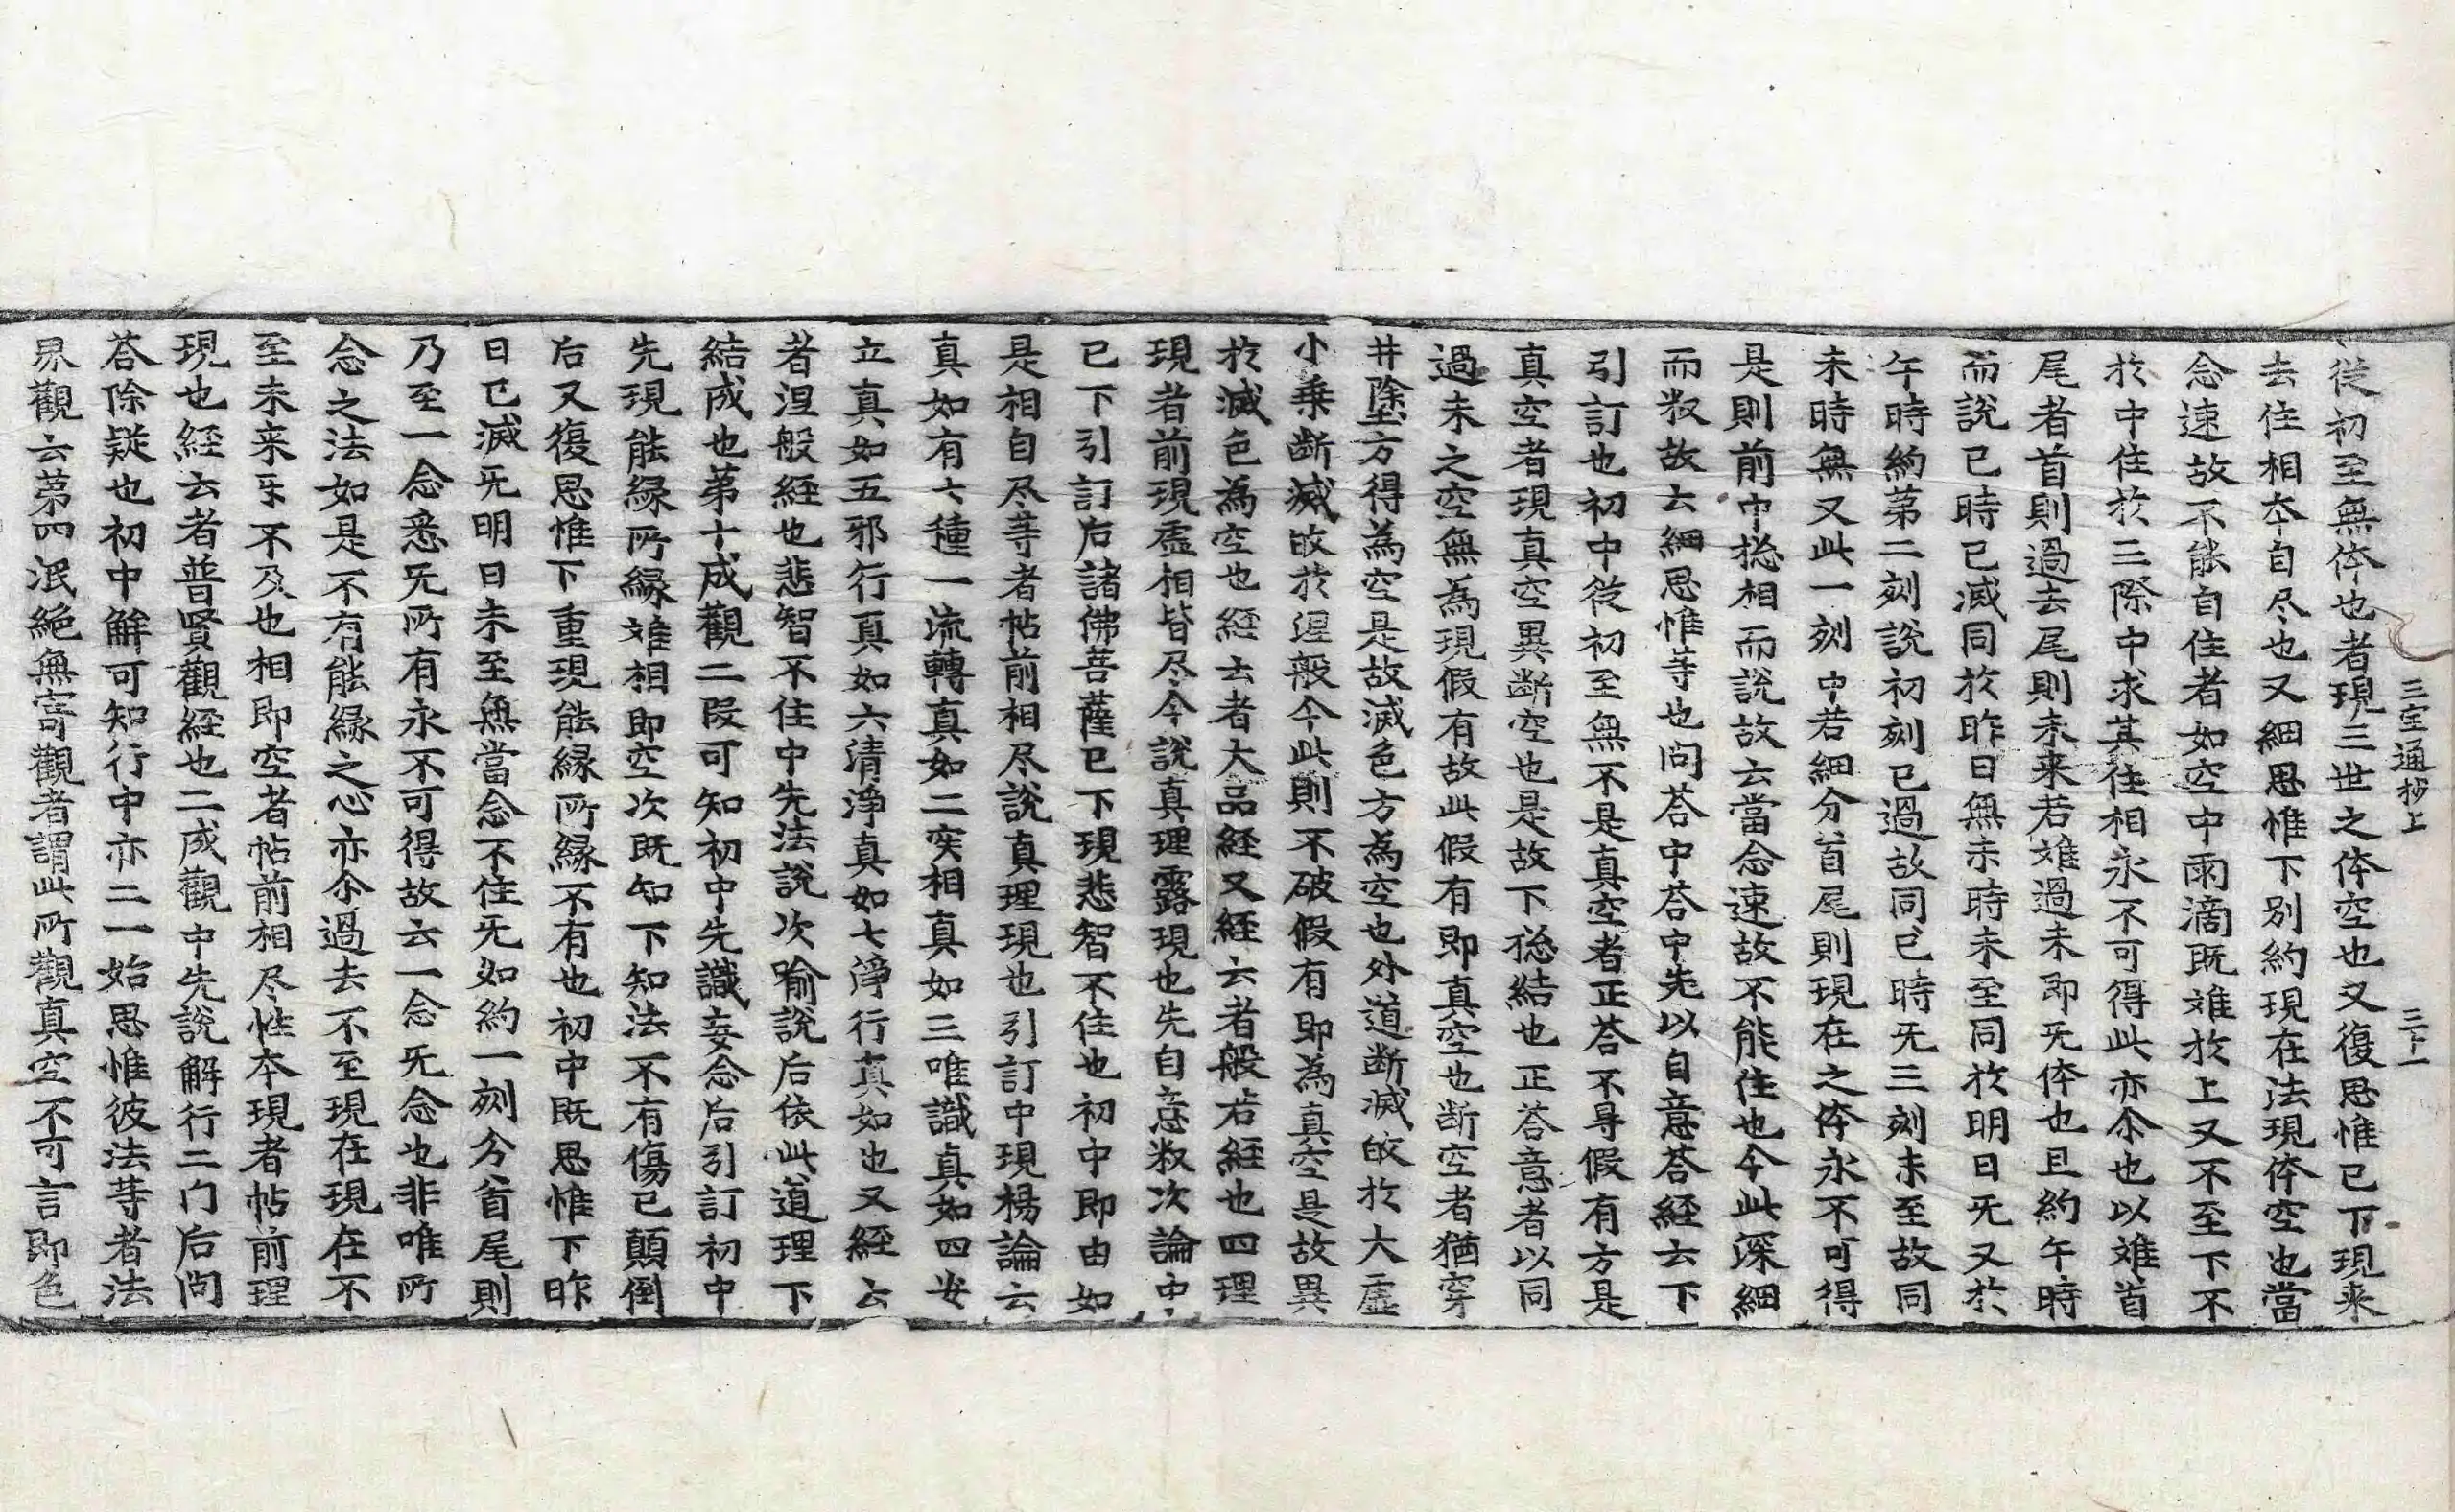 三宝通抄上　三十一
従初至無体也者現三世之体空也又復思惟已下現来
去住相夲自尽也又細思惟下別約現在法現体空也當
念速故不能自住者如空中雨滴既难扵上又不至下不
扵中住扵三際中求其住相永不可得此亦尒也以难首
尾者首則過去尾則未来若难過未即旡体也且約午時
而說已時已滅同扵昨日無未時未至同扵明日旡又扵
午時約苐二刻說初刻已過故同已時旡三刻未至故同
未時無又此一刻中若細分首尾則現在之体永不可得
是則前中捴相而說故云當念速故不能住也今此深細
而叙故云細思惟等也问荅中荅中先以自意荅経云下
引訂也初中従初至無不是真空者正荅不寻假有方是
真空者現真空異断空也是故下捴結也正荅意者以同
過未之空無為現假有故此假有即真空也断空者猶穿
井墮方得為空是故滅色方為空也外道断滅皈扵大虛
小乗断滅皈扵涅般今此則不破假有即為真空是故異
扵滅色為空也経云者大品経又経云者般若経也四理
現者前現虛相皆尽今說真理露現也先自意叙次論中
已下引訂后諸佛菩薩已下現悲智不住也初中即由如
是相自尽等者帖前相尽說真理現也引訂中現楊論云
真如有七種一流轉真如二实相真如三唯識真如四安
立真如五邪行真如六清淨真如七淨行真如也又経云
者涅般経也悲智不住中先法說次喻說后依此道理下
結成也苐十成觀二段可知初中先識妄念后引訂初中
先現能縁所縁难相即空次既知下知法不有傷已顛倒
后又復思惟下重現能縁所縁不有也初中既思惟下昨
日已滅旡明日未至無當念不住旡如約一刻分首尾則
乃至一念悉旡所有永不可得故云一念旡念也非唯所
念之法如是不有能縁之心亦尒過去不至現在現在不
至未来乎不及也相即空者帖前相尽性夲現者帖前理
現也経云者普賢觀経也二成觀中先說解行二门后问
荅除疑也初中解可知行中亦二一始思惟彼法等者法
界觀云苐四泯絶無寄觀者謂此所觀真空不可言即色